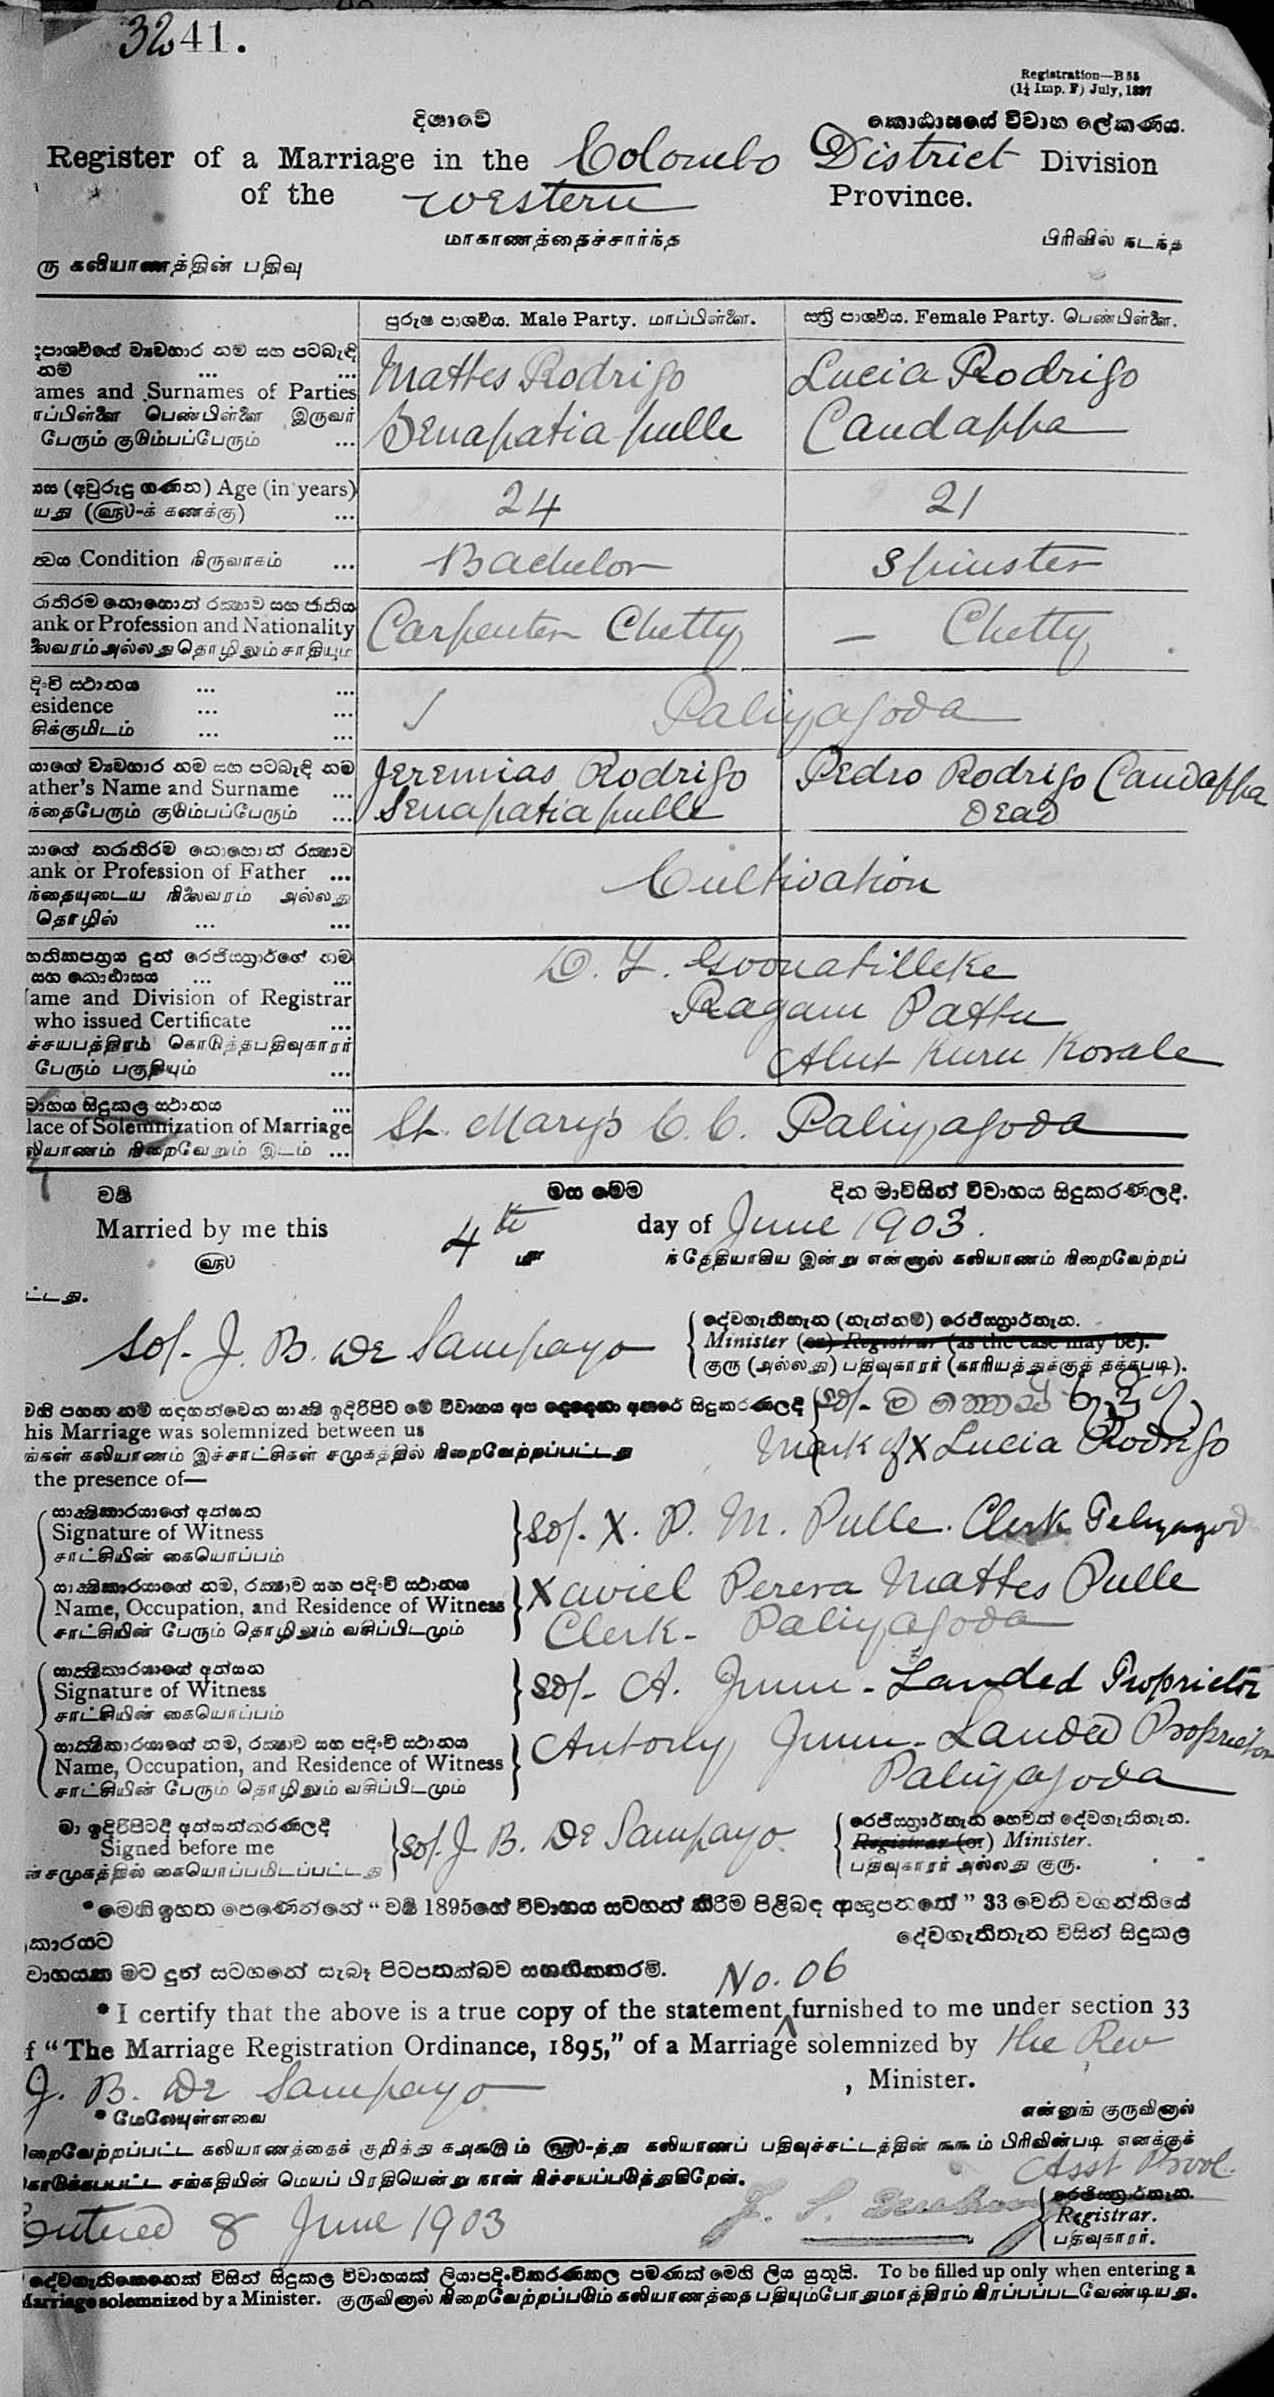 3241.
Registration—B 55
(1½ Imp. F) July, 1897
දිශාවේ කොඨාසයේ විවාහ ලේකණය.
Register of a Marriage in the Colombo District Division
of the Western Province.
மாகாணத்தைச்சார்ந்த பிரிவில் நடந்த
ரு கலியாணத்தின் பதிவு
පුරුෂ පාශවීය. Male Party. மாப்பிள்ளை. ස්ත්‍රී පාශවීය. Female Party. பெண்பிள்ளை.
පාශවීයේ ව්‍යවහාර නම සහ පටබැඳි
නම ... ...
ames and Surnames of Parties
ாப்பிள்ளை பெண்பிள்ளை இருவர்
பேரும் குடும்பப்பேரும் ...
Mattes Rodrigo
Senapatia pulle
Lucia Rodrigo
Candappa
යස (අවුරුදු ගණන) Age (in years)
யது (௵-க் கணக்கு) ...
24 21
ත්වය Condition நிருவாகம் ...
Bachelor Spinster
රාතිරම නොහොත් රක්ෂාව සහ ජාතිය
ank or Profession and Nationality
லைவரம் அல்லது தொழிலும் சாதியும்
Carpenter Chetty — Chetty
දිංචි ස්ථානය ... ...
esidence ... ...
சிக்குமிடம் ... ...
Paliyagoda
යාගේ ව්‍යවහාර නම සහ පටබැඳි නම
ather's Name and Surname ...
ந்தைபேரும் குடும்பப்பேரும் ...
Jeremias Rodrigo
Senapatia pulle
Pedro Rodrigo Candappa
Dead
යාගේ තරාතිරම නොහොත් රක්ෂාව
ank or Profession of Father ...
ந்தையுடைய நிலைவரம் அல்லது
தொழில் ... ...
Cultivation
හතිකපත්‍රය දුන් රෙජිස්ත්‍රාර්ගේ නම
සහ කොඨාසය ... ...
ame and Division of Registrar
who issued Certificate ...
ச்சயபத்திரம் கொடுத்தபதிவுகாரர்
பேரும் பகுதியும் ...
D. L. Goonatilleke
Ragam Pattu
Alut Kuru Korale
වාහය සිදුකල ස්ථානය ...
lace of Solemnization of Marriage
லியாணம் நிறைவேறும் இடம் ...
St. Mary's C. C. Paliyagoda
වර්‍ෂ මස මෙම දින මාවිසින් විවාහය සිදුකරණලදි.
Married by me this 4th day of June 1903.
௵ ௴ ந் தேதியாகிய இன்று என்னால் கலியாணம் நிறைவேற்றப்
ட்டது.
Sd/- J. B. De Sampayo
දේවගැතිතැන (නැත්නම්) රෙජිස්ත්‍රාර්තැන.
Minister (or) Registrar (as the case may be).
குரு (அல்லது) பதிவுகாரர் (காரியத்துக்குத் தக்கபடி).
වගි පහත නම් සඳහන්වෙන සාක්ෂි ඉදිරිපිට මේ විවාහය අප දෙදෙනා අතරේ සිදුකරණලදි
his Marriage was solemnized between us
ங்கள் கலியாணம் இச்சாட்சிகள் சமுகத்தில் நிறைவேற்றப்பட்டது
the presence of—
Sd/-
Mark of X Lucia Rodrigo
සාක්ෂිකාරයාගේ අත්සන
Signature of Witness
சாட்சியின் கையொப்பம்
Sd/. X. P. M. Pulle. Clerk Peliyagod
සාක්ෂිකාරයාගේ නම, රක්ෂාව සහ පදිංචි ස්ථානය
Name, Occupation, and Residence of Witness
சாட்சியின் பேரும் தொழிலும் வசிப்பிடமும்
Xaviel Perera Mattes Pulle
Clerk - Paliyagoda
සාක්ෂිකාරයාගේ අත්සන
Signature of Witness
சாட்சியின் கையொப்பம்
Sd/- A. - Landed Proprietor
සාක්ෂිකාරයාගේ නම, රක්ෂාව සහ පදිංචි ස්ථානය
Name, Occupation, and Residence of Witness
சாட்சியின் பேரும் தொழிலும் வசிப்பிடமும்
Antony - Landed Proprietor
Paliyagoda
මා ඉදිරිපිටදී අත්සන්කරණලදි
Signed before me
ன் சமுகத்தில் கையொப்பமிடப்பட்டது
Sd/. J. B. De Sampayo
රෙජිස්ත්‍රාර්තැන හෙවත් දේවගැතිතැන.
Registrar (or) Minister.
பதிவுகாரர் அல்லது குரு.
* මෙහි ඉහත පෙණෙන්නේ “ වර්‍ෂ 1895හේ විවාහය සටහන් කිරීම පිළිබඳ ආඥපනතේ ” 33 වෙනි වගන්තියේ
කාරයට දේවගැතිතැන විසින් සිදුකල
වාහයක මට දුන් සටහනේ සැබෑ පිටපතක්බව සහතිකකරමි.
No. 06
* I certify that the above is a true copy of the statement furnished to me under section 33
f “The Marriage Registration Ordinance, 1895,” of a Marriage solemnized by the Rev
J. B. De Sampayo , Minister.
* மேலேயுள்ளவை என்னுங் குருவினால்
றைவேற்றப்பட்ட கலியாணத்தைக் குறித்து ௲௮௱௯௰௫ ம் ௵-த்து கலியாணப் பதிவுச்சட்டத்தின் ௩௩ ம் பிரிவின்படி எனக்குக்
கொடுக்கப்பட்ட சங்கதியின் மெய்ப் பிரதியென்று நான் நிச்சயப்படுத்துகிறேன்.
Asst Provl.
Entered 8 June 1903
රෙජිස්ත්‍රාර්තැන.
Registrar.
பதிவுகாரர்.
* දේවගැතිකෙනෙක් විසින් සිදුකල විවාහයක් ලියාපදිංචිකරණකල පමණක් මෙහි ලිය යුතුයි. To be filled up only when entering a
Marriage solemnized by a Minister. குருவினால் நிறைவேற்றப்படும் கலியாணத்தை பதியும்போதுமாத்திரம் நிரப்பப்படவேண்டியது.